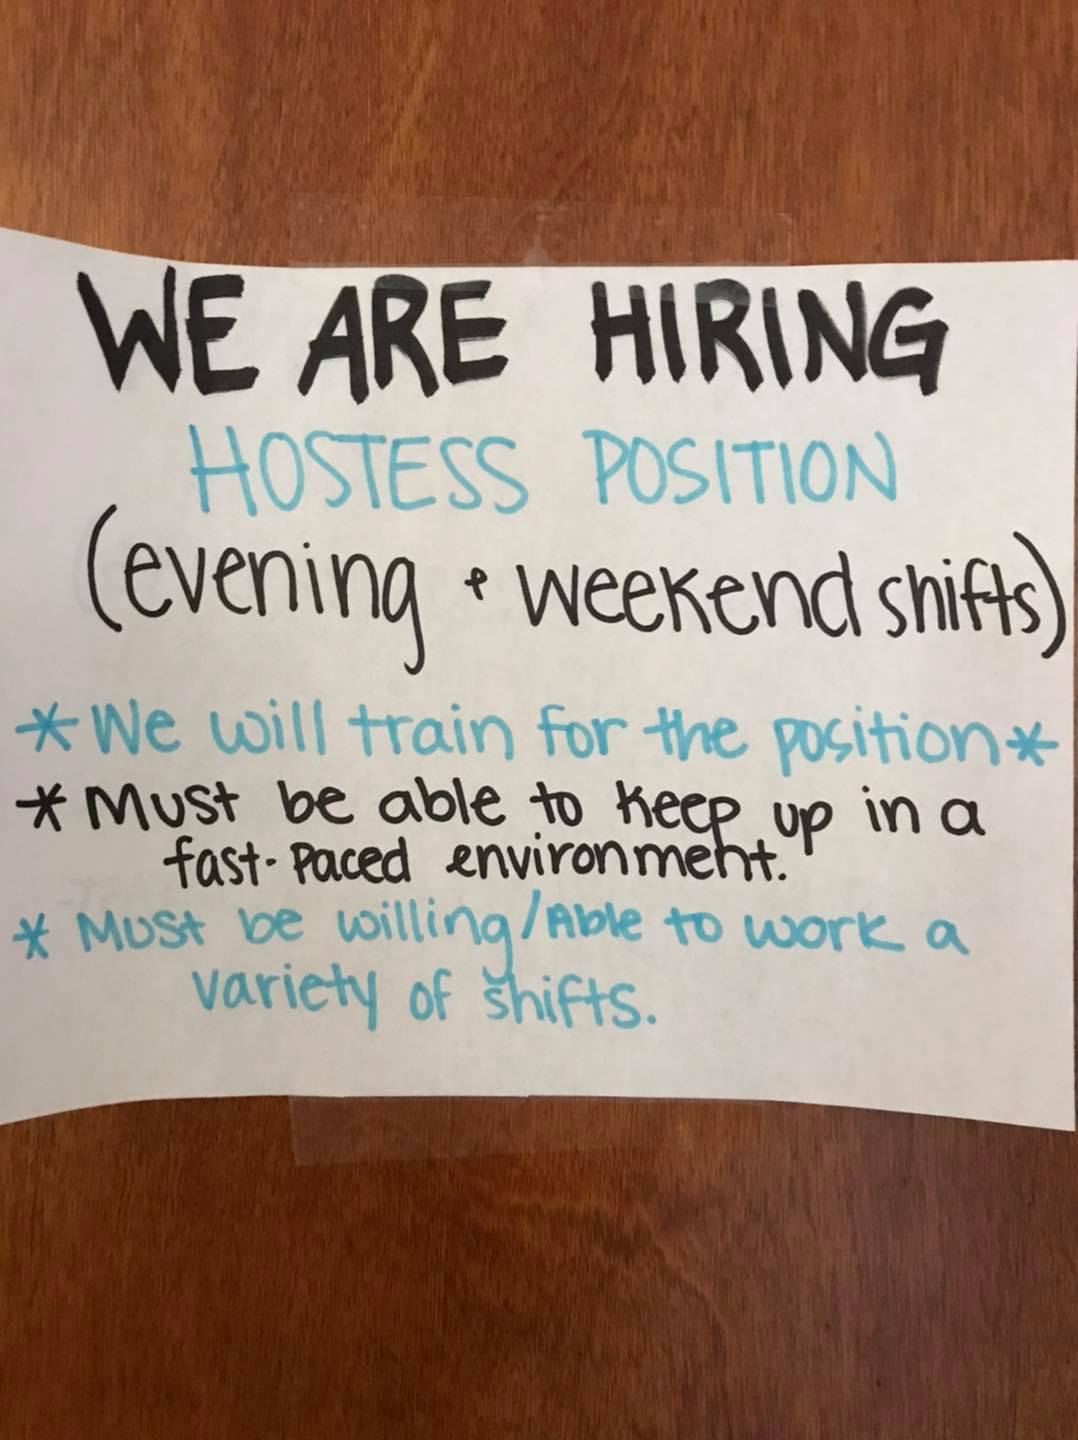 WE ARE HIRING
HOSTESS POSITION
(evening + weekend shifts)
*We will train for the position*
*Must be able to keep up in a
fast-paced environment.
* Must be willing/Able to work a
variety of shifts.